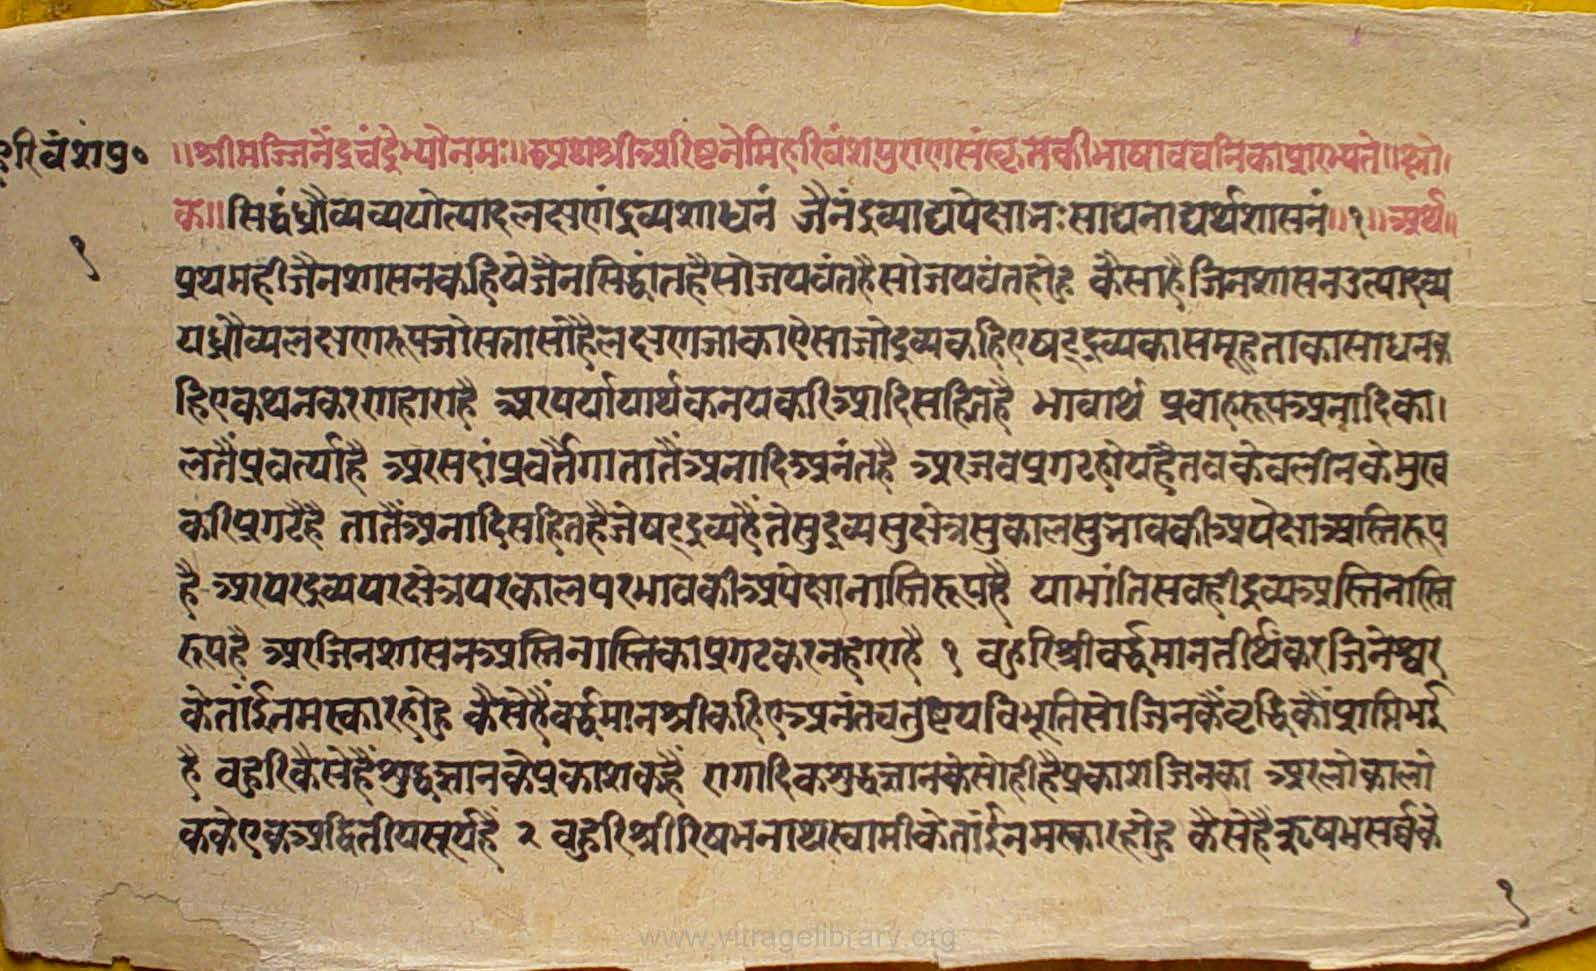 हरिवंशपु०
॥श्रीमज्जिनेंद्रचंद्रेभ्योनमः॥अथश्रीअरिष्टनेमिहरिवंशपुराणसंस्कृतकीभाषावचनिकाप्रारभ्यते॥श्लो
क॥सिद्धंध्रौव्यव्ययोत्पादलक्षणंद्रव्यशाधनं जैनंद्रव्याद्यपेक्षानःसाद्यनाद्यर्थशासनं॥१॥अर्थ॥
१
प्रथमहीजैनशासनकहियेजैनसिद्धांतहैसोजयवंतहैसोजयवंतहोहु कैसाहैजिनशासनउत्पादव्य
यध्रौव्यलक्षणरूपजोसत्तासोहैलक्षणजाकाऐसाजोद्रव्यकहिएषट्द्रव्यकासमूहताकासाधनक
हिएकथनकरणहाराहै अरपर्यायार्थकनयकरिआदिसहितहै भावार्थ प्रवाहरूपअनादिका।
लतैंप्रवर्त्याहै अरसदांप्रवर्तैगातातैंअनादिअनंतहै अरजबप्रगटहोयहैतबकेवलीनकेमुख
करिप्रगटैहै तातैंअनादिसहितहैजेषट्द्रव्यहैंतेसुद्रव्यसुक्षेत्रसुकालसुभावकीअपेक्षाअस्तिरूप
है अरपरद्रव्यपरक्षेत्रपरकालपरभावकीअपेक्षानास्तिरूपहै याभांतिसबहीद्रव्यअस्तिनास्ति
रूपहै अरजिनशासनअस्तिनास्तिकाप्रगटकरनहाराहै १ बहुरिश्रीवर्द्धमानतीर्थंकरजिनेश्वर
केतांईनमस्कारहोहु कैसेहैंवर्द्धमानश्रीकहिएअनंतचतुष्टयविभूतिसोजिनकैंवृद्धिकौंप्राप्तिभई
है बहुरिकैसेहैंशुद्धज्ञानकेप्रकाशकहैं रागादिकशुद्धज्ञानकेसोहीहैप्रकाशजिनका अरलोकालो
ककेएकअद्वितीयसूर्यहैं २ बहुरिश्रीरिषभनाथस्वामीकेतांईनमस्कारहोहु कैसेहैऋषभसर्वके
१
www.vitragelibrary.org